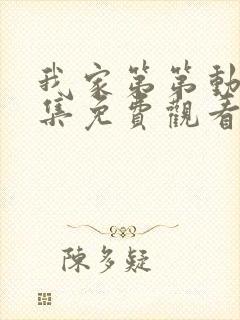 我家第第動
集免費觀看
陳多疑